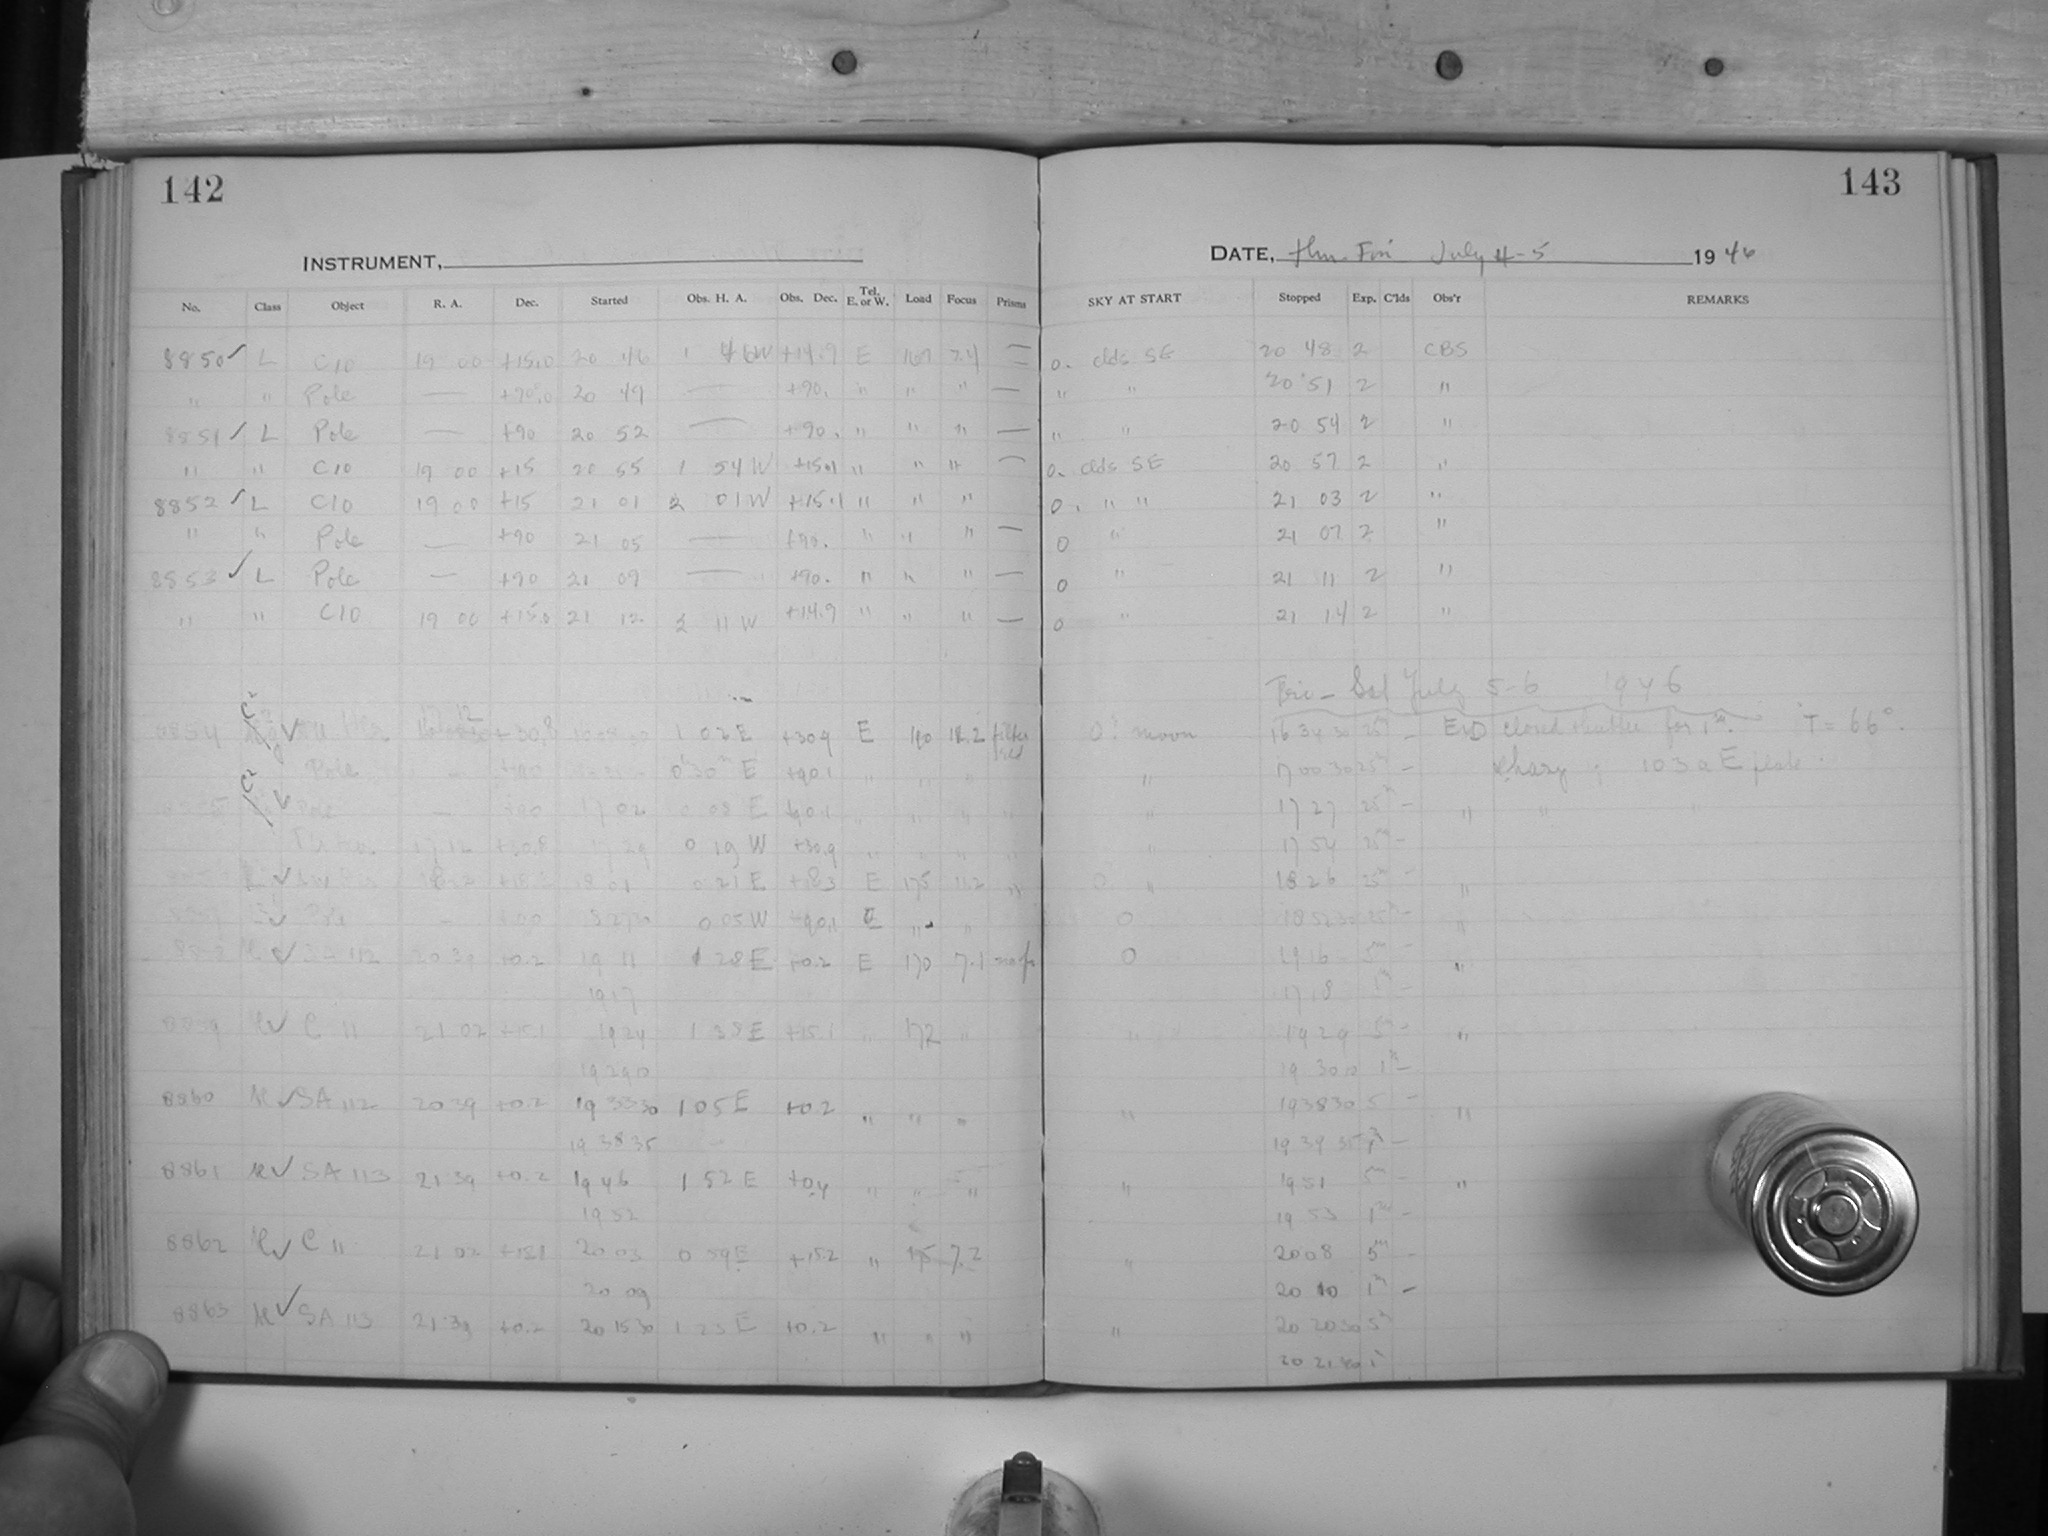 142
143
INSTRUMENT,
DATE, July 4-5 1946
No. Class Object R. A. Dec. Started Obs. H. A. Obs. Dec. Tel. E. or W. Load Focus Prisms SKY AT START Stopped Exp. C'lds Obs'r REMARKS
8850 ✓ L C10 19 00 +15.0 20 46 1 46W +14.9 E 167 7.4 — 0. clds SE 20 48 2 CBS
" " Pole — +90.0 20 49 — +90. " " " — " " 20 51 2 "
8851 ✓ L Pole — +90 20 52 — +90. " " " — " " 20 54 2 "
" " C10 19 00 +15 20 55 1 54W +15.1 " " " — 0. clds SE 20 57 2 "
8852 ✓ L C10 19 00 +15 21 01 2 01W +15.1 " " " 0. " " 21 03 2 "
" " Pole — +90 21 05 — +90. " " " — 0 " 21 07 2 "
8853 ✓ L Pole — +90 21 09 — +90. " " " — 0 " 21 11 2 "
" " C10 19 00 +15.0 21 12 2 11W +14.9 " " " — 0 " 21 14 2 "
Fri - Sat July 5-6 1946
8854 ✓ +30.8 1 02 E +30.9 E 190 filter moon 16 34 30 25m - closed shutter for 1m. T = 66°.
Pole - +90 0 30m E +90.1 " " " " 17 00 30 25m - 103aE plate.
✓ Pole - +90 17 02 0 08 E +90.1 " " " " " 17 27 25m - " " "
17 12 +30.8 17 29 0 19 W +30.9 " " " " " 17 54 25m -
✓ 18 01 0 21 E +18.3 E 175 11.2 " 0 " 18 26 25m - "
✓ Pole - +90 0 05W +90.1 E " " 0 18 52 30 25m - "
✓ SA 112 20 39 +0.2 19 11 1 28E +0.2 E 170 7.1 0 19 16 5m - "
19 17 1m -
8859 ✓ C 11 21 02 +15.1 19 24 1 38E +15.1 " 172 " " 19 29 5m - "
19 29 0 19 30 10 1m -
8860 ✓ SA 112 20 39 +0.2 19 33 30 1 05 E +0.2 " " " " 19 38 30 5 - "
19 38 35 19 39 35 1m -
8861 ✓ SA 113 21 39 +0.2 19 46 1 52 E +0.4 " " " " 19 51 5m - "
19 52 19 53 1m -
8862 ✓ C 11 21 02 +15.1 20 03 0 59E +15.2 " 175 7.2 " 20 08 5m -
20 09 20 10 1m -
8863 ✓ SA 113 21 39 +0.2 20 15 30 1 23 E +0.2 " " " " 20 20 30 5m
20 21 40 1